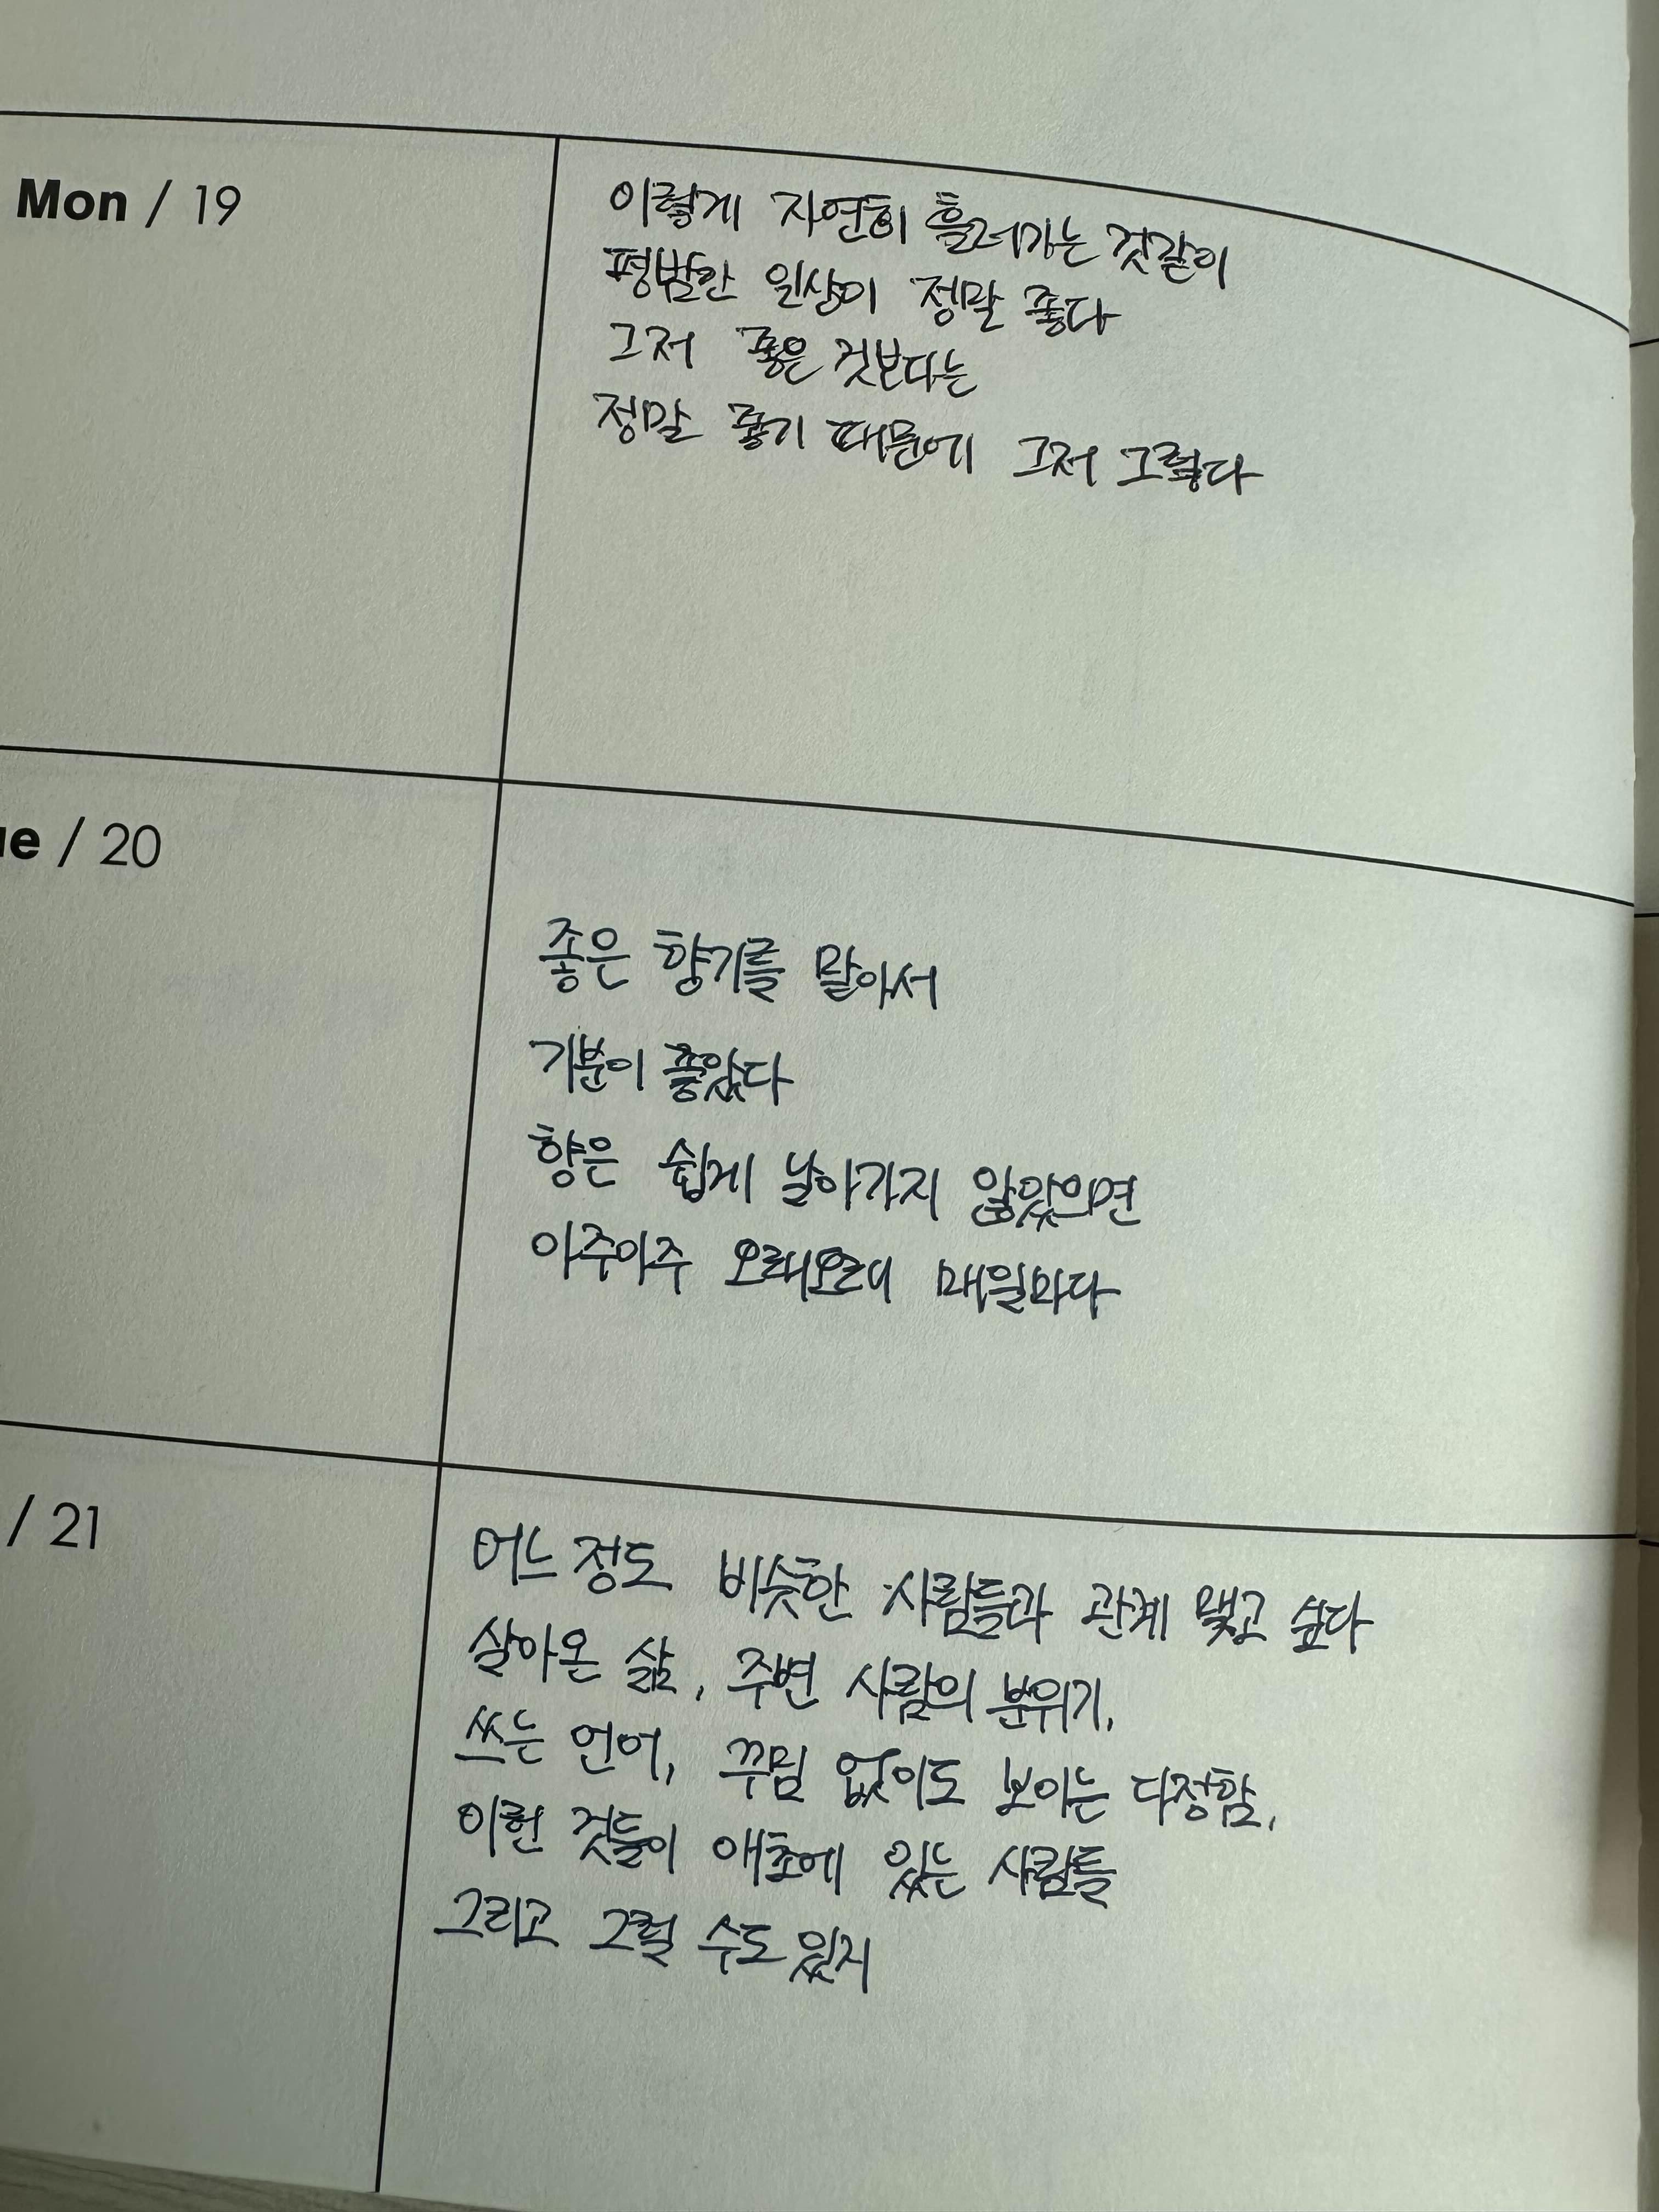 Mon / 19
이렇게 자연히 흘러가는 것같이
평범한 일상이 정말 좋다
그저 좋은 것보다는
정말 좋기 때문에 그저 그렇다
ue / 20
좋은 향기를 맡아서
기분이 좋았다
향은 쉽게 날아가지 않았으면
아주아주 오래오래 매일마다
/ 21
어느 정도 비슷한 사람들과 관계 맺고 싶다
살아온 삶, 주변 사람의 분위기,
쓰는 언어, 꾸밈 없이도 보이는 다정함,
이런 것들이 애초에 있는 사람들
그리고 그럴 수도 있지